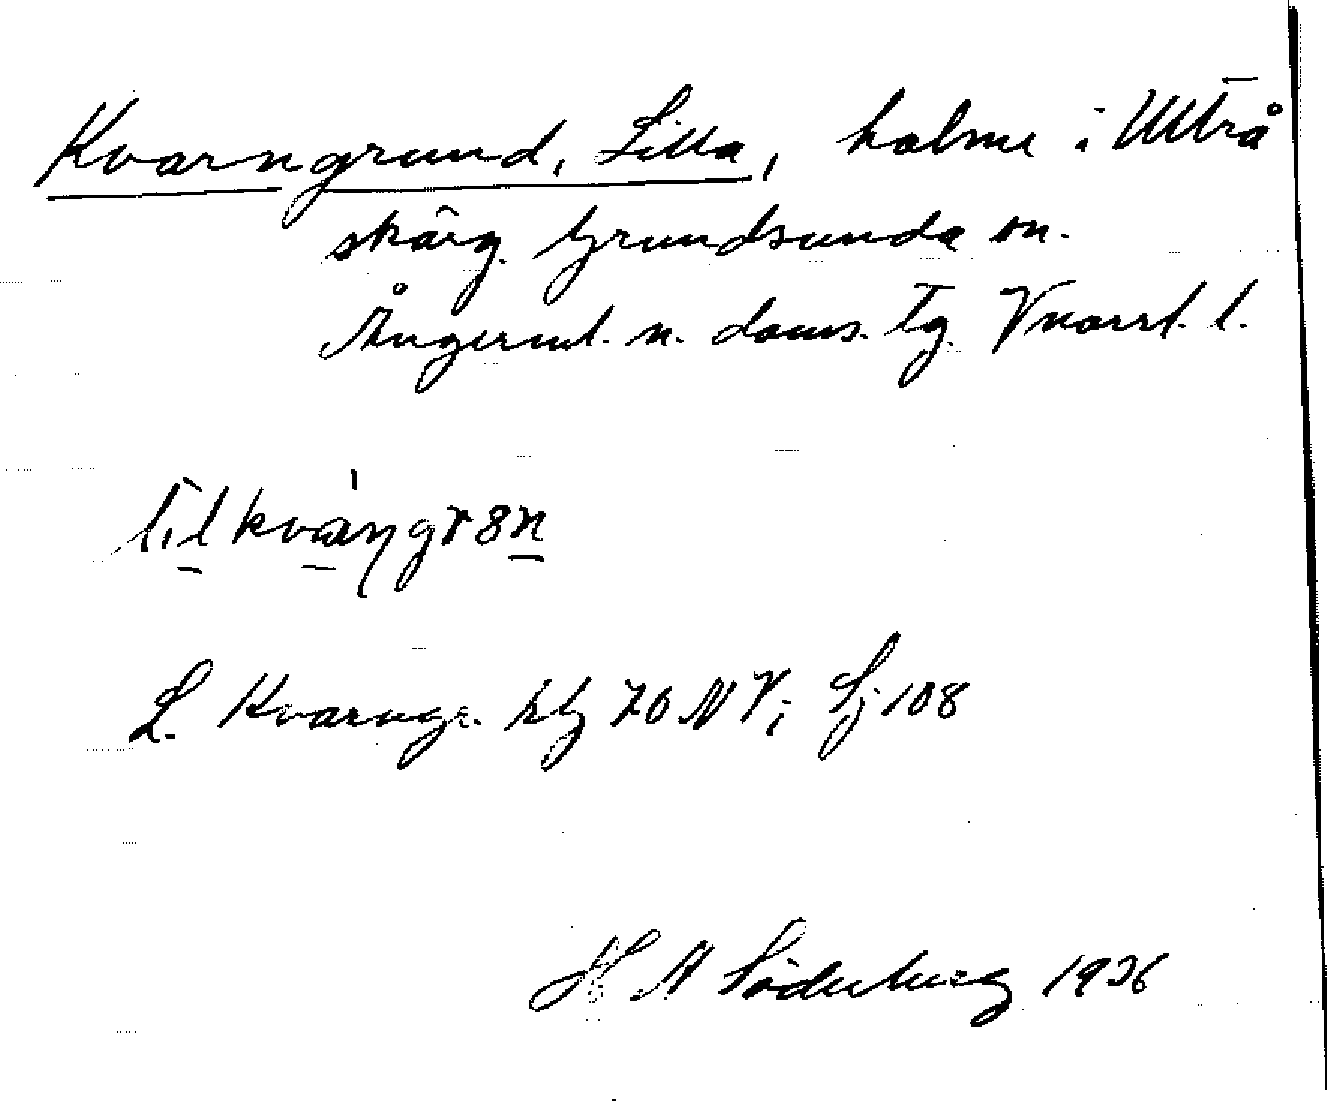 Kvarngrund, Lilla, holme i Ulvå
skärg. Grundsunda sn.
Ångerml. n. doms. Tg. Vnorrl. l.
lil kvaŋgr8n
L. Kvarngr. kbl 70 NV; Sj 108
H A Söderberg 1926